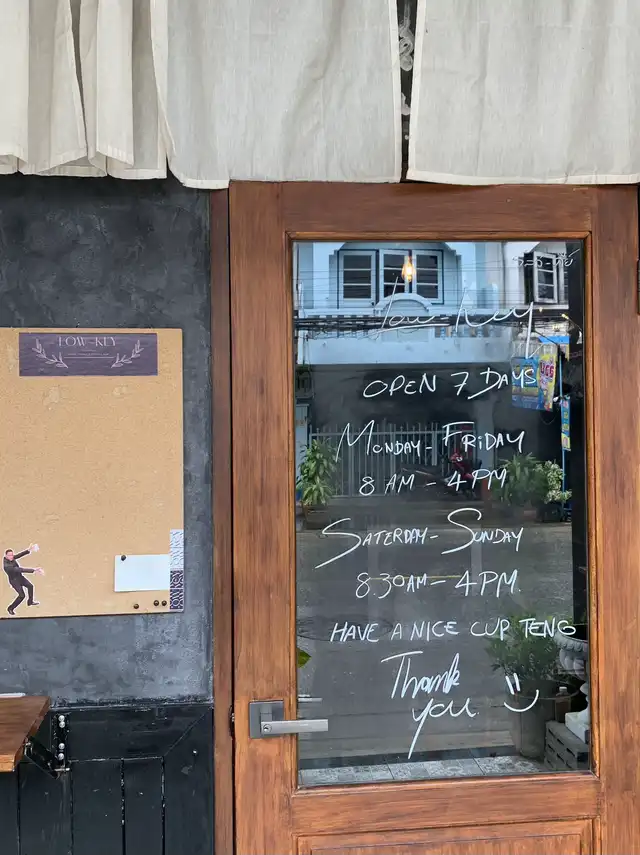 LOW-KEY
Low-Key
OPEN 7 DAYS
MONDAY - FRIDAY
8 AM - 4 PM
SATERDAY - SUNDAY
8.30AM - 4PM.
HAVE A NICE CUP TENG
Thank
you